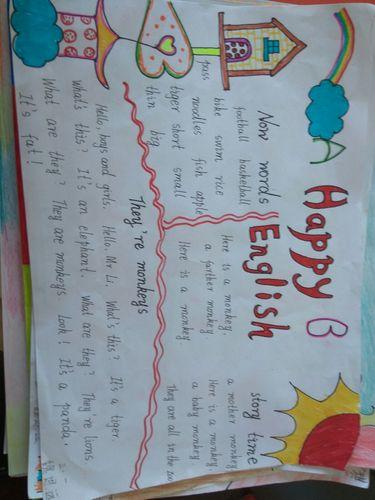 A Happy B
English
Now words
football basketball
bike swim rice
pass noodles fish apple
tiger short small
thin big
Here is a monkey.
a farther monkey
Here is a monkey
story time
a mother monkey
Here is a monkey
a baby monkey
They are all in the
They're monkeys
Hello, boys and girls. Hello, Mr Li. What's this? It's a tiger.
what's this? It's an elephant. what are they? They're lions.
What are they? They are monkeys Look! It's a panda.
It's fat!